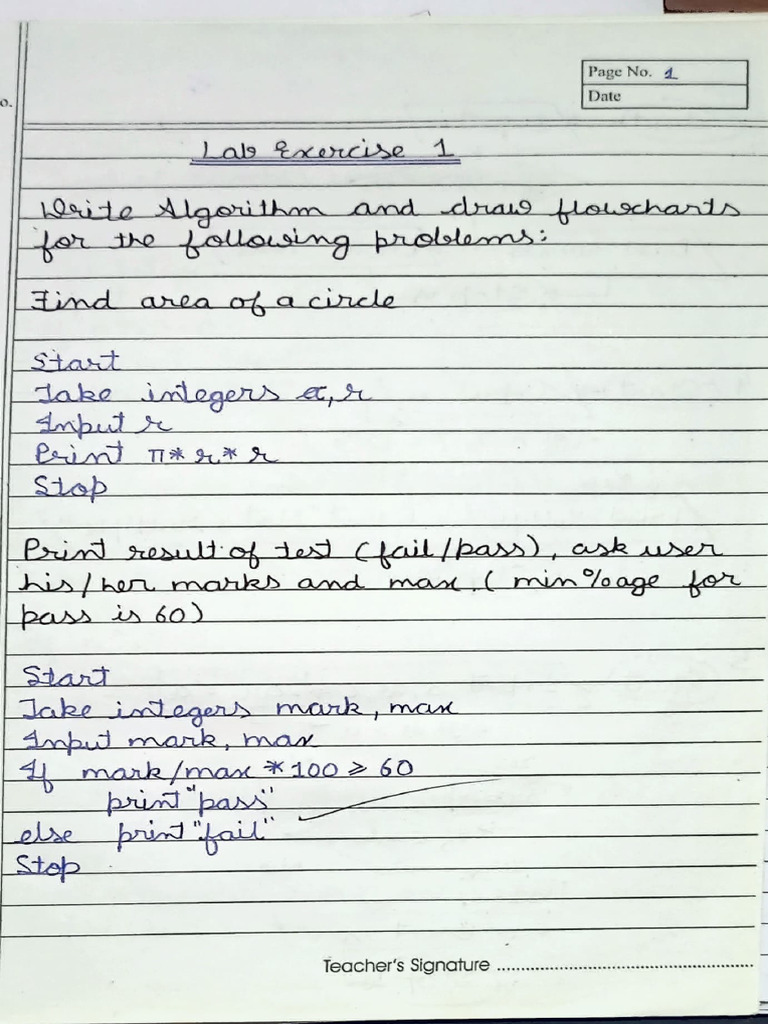 o.
Page No. 1
Date
Lab Exercise 1
Write Algorithm and draw flowcharts
for the following problems:
Find area of a circle
Start
Take integers r
Input r
Print π* r* r
Stop
Print result of test (fail/pass), ask user
his/her marks and max. (min%age for
pass is 60)
Start
Take integers mark, max
Input mark, max
If mark/max *100 ⩾ 60
print "pass"
else print "fail"
Stop
Teacher's Signature ........................................................